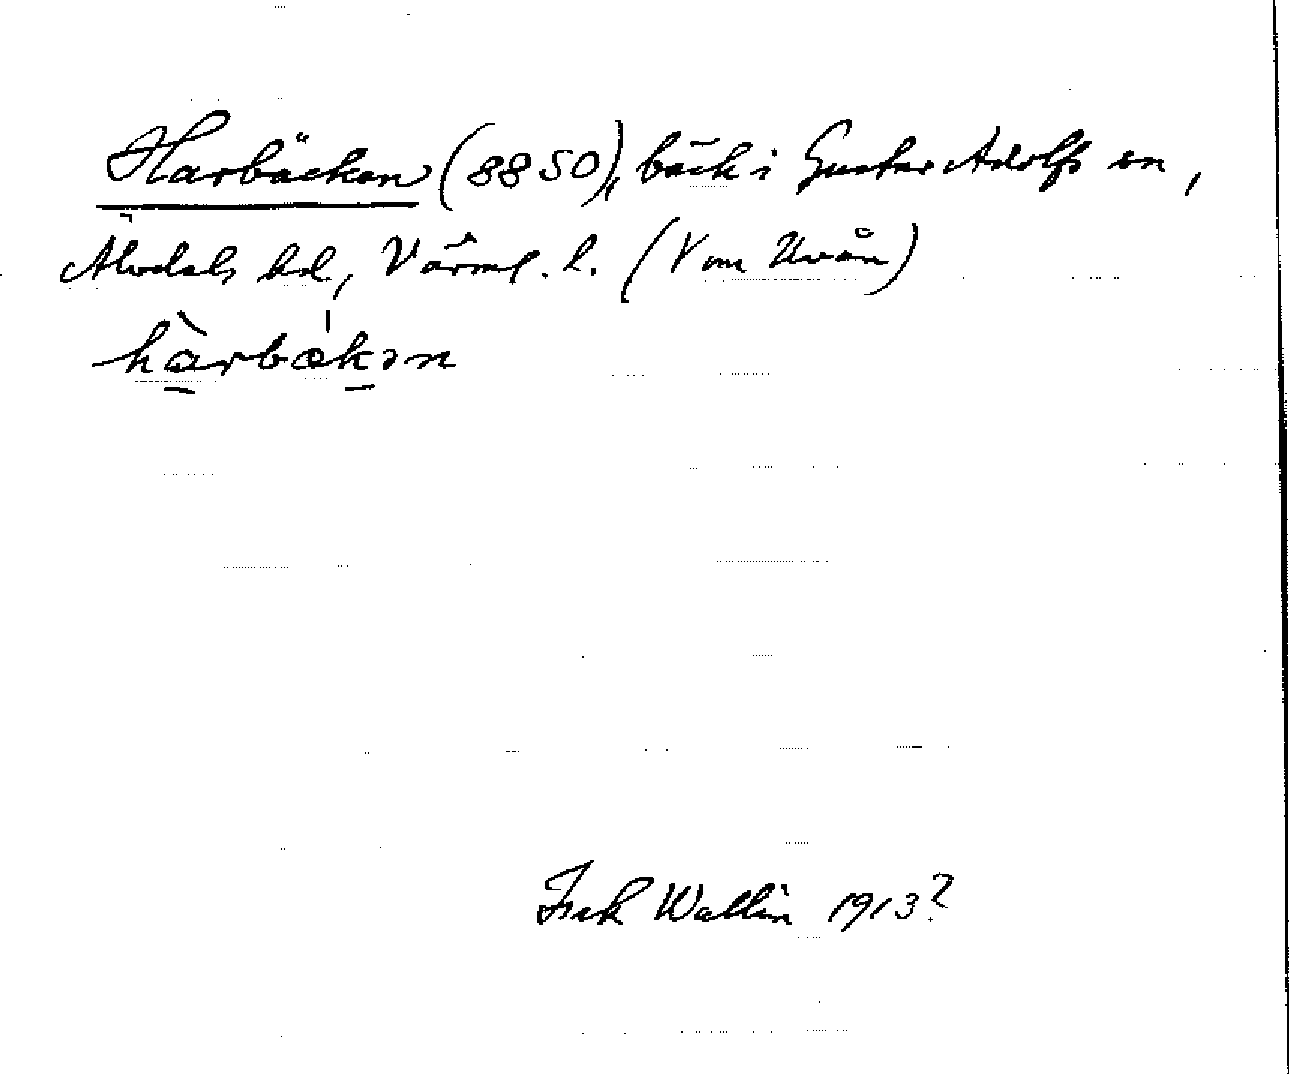 Harbäcken (8850), bäck i Gustav Adolfs sn,
Älvdals hd, Värml. l. (V om Uvån)
hàrbækən
Wallin 1913?